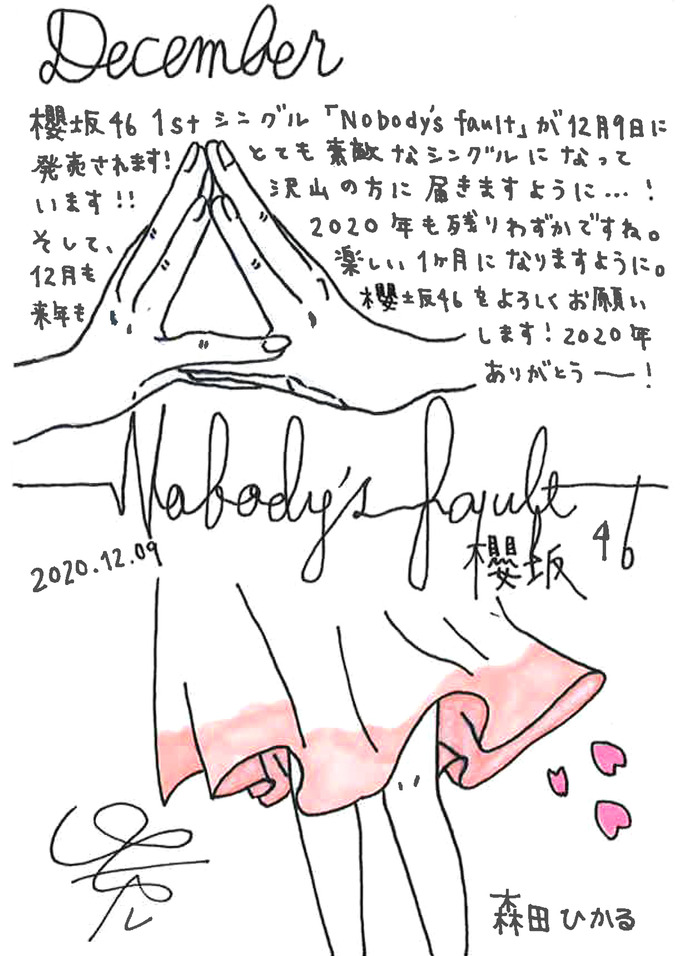 December
櫻坂46 1stシングル「Nobody's fault」が12月9日に
発売されます! とても素敵なシングルになって
います!! 沢山の方に届きますように…!
そして、 2020年も残りわずかですね。
12月も 楽しい1ヶ月になりますように。
来年も 櫻坂46をよろしくお願い
します! 2020年
ありがとうー!
Nobody's fault
2020.12.09
櫻坂46
森田ひかる